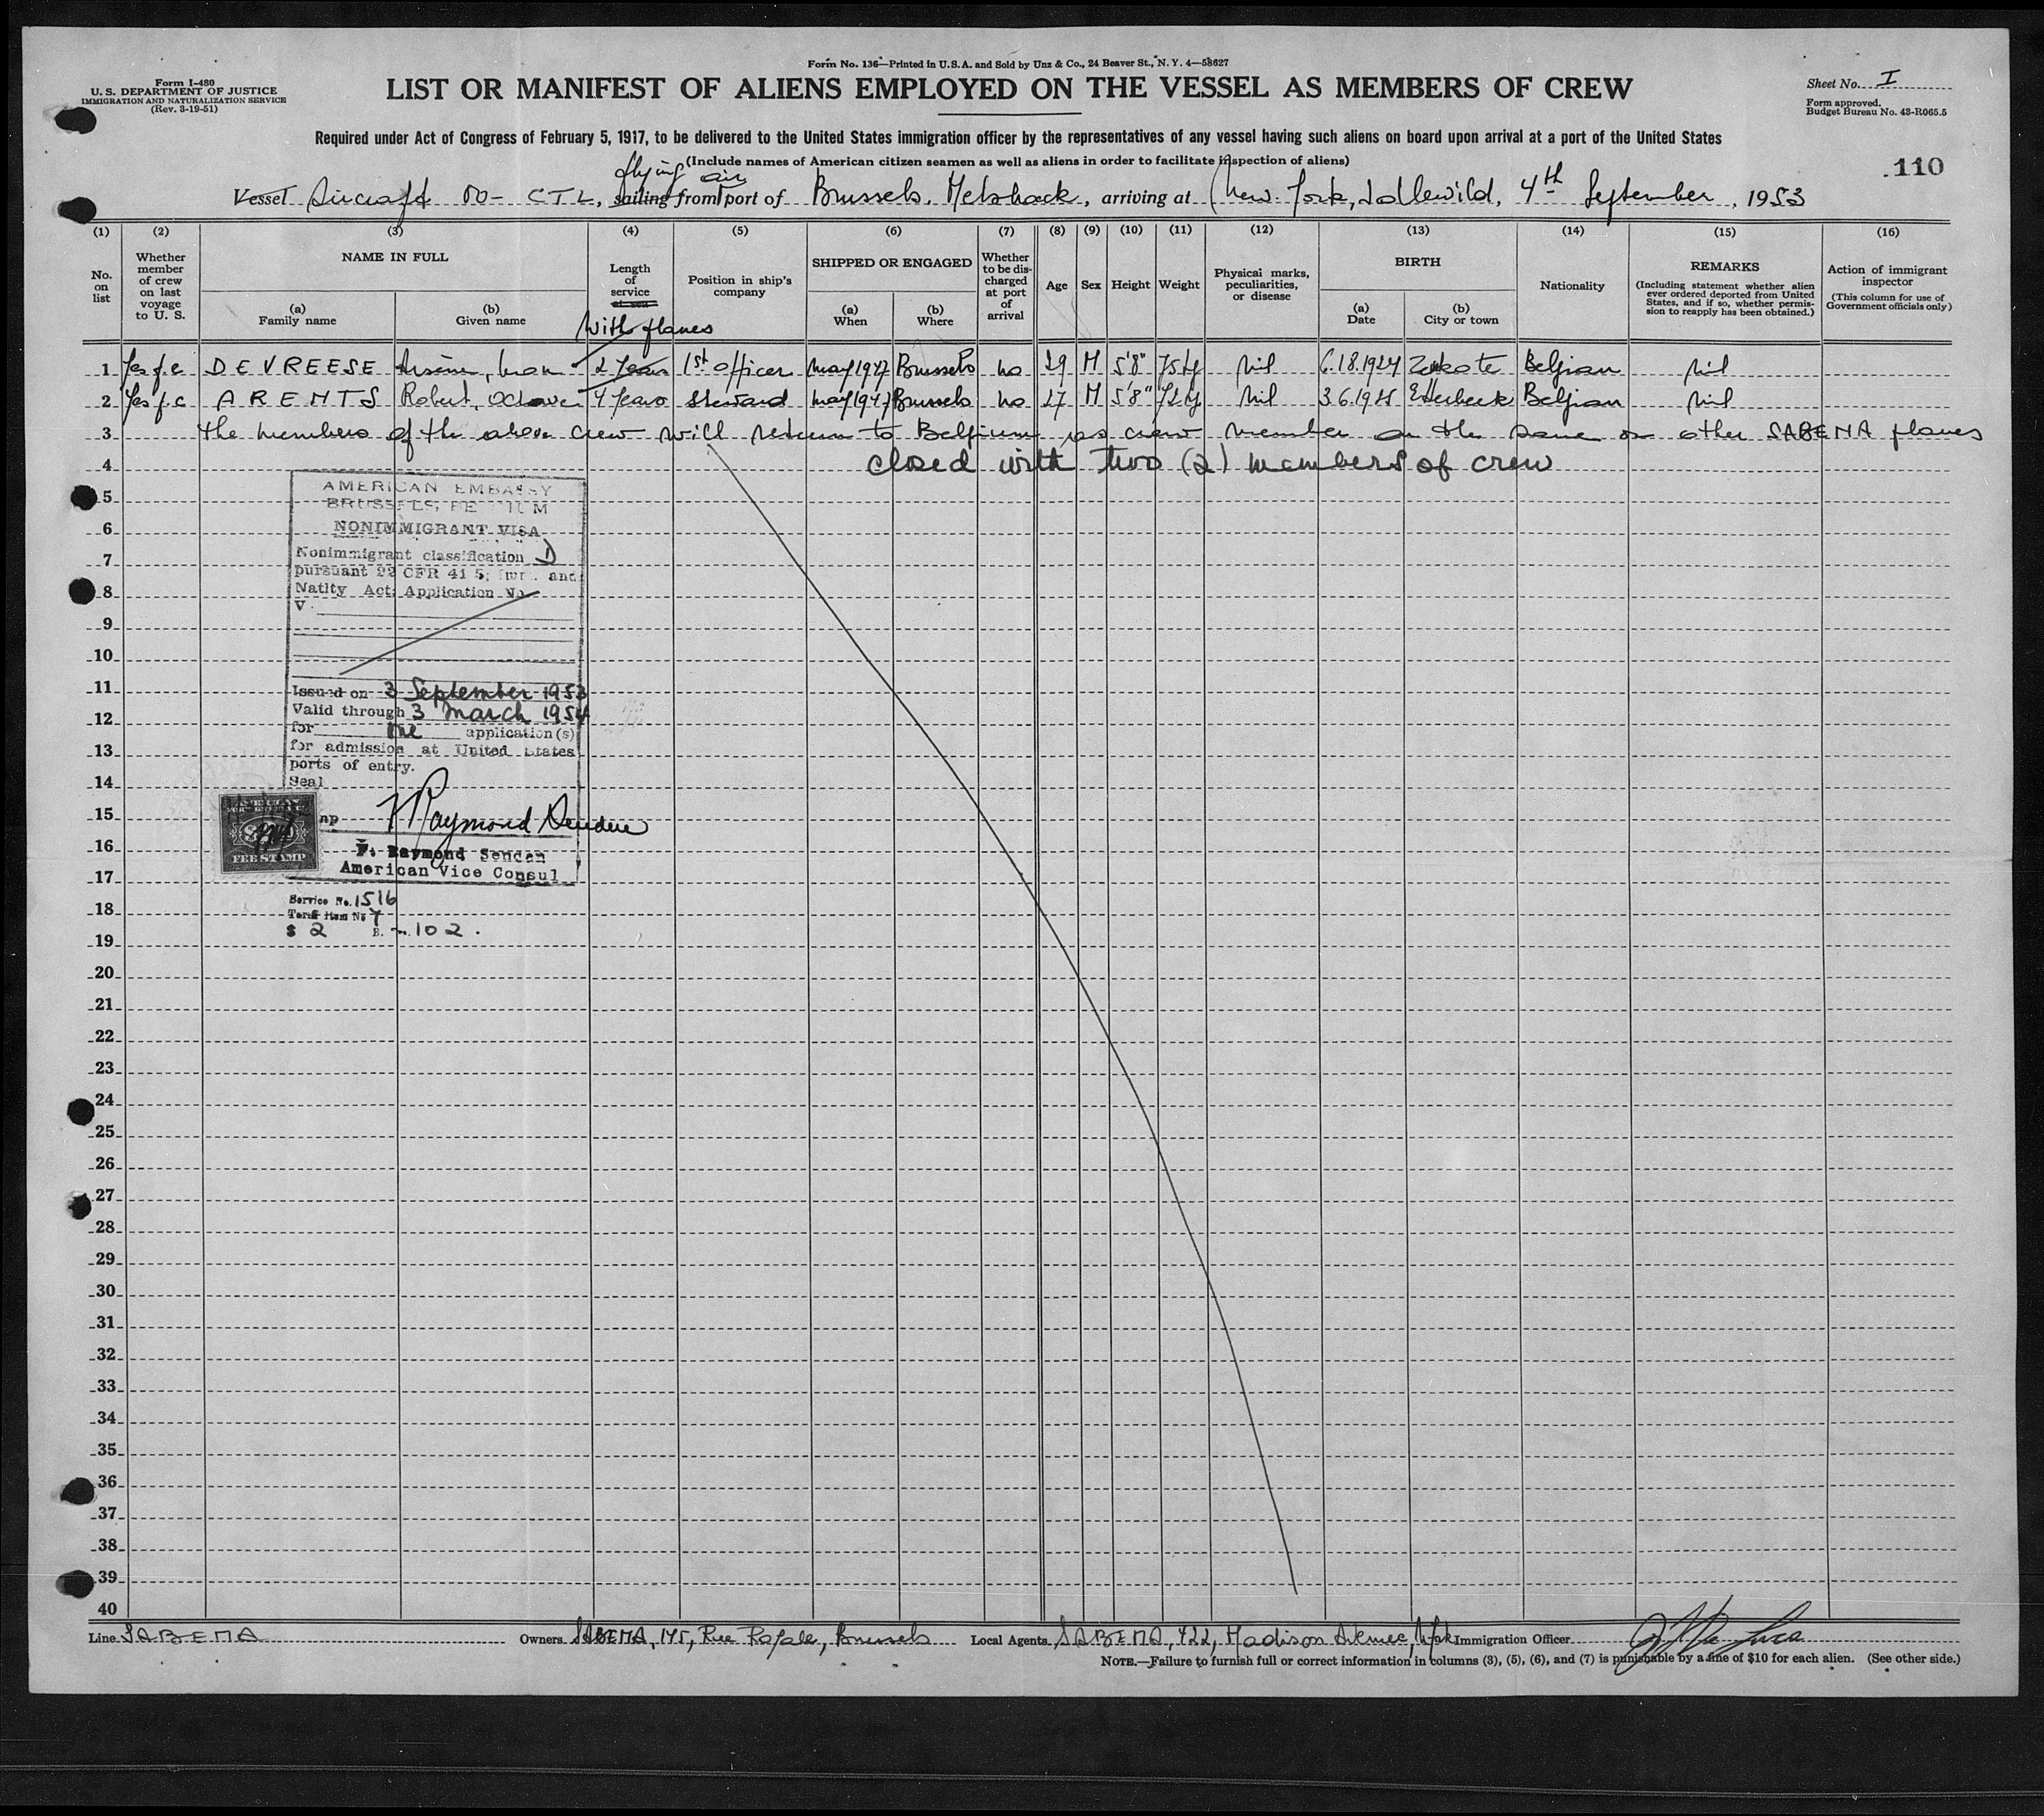 Form No. 136—Printed in U.S.A. and Sold by Unz & Co., 24 Beaver St., N. Y. 4—58627
Form I-480
U. S. DEPARTMENT OF JUSTICE
IMMIGRATION AND NATURALIZATION SERVICE
(Rev. 3-19-51)
LIST OR MANIFEST OF ALIENS EMPLOYED ON THE VESSEL AS MEMBERS OF CREW
Sheet No. I
Form approved.
Budget Bureau No. 43-R065.5
Required under Act of Congress of February 5, 1917, to be delivered to the United States immigration officer by the representatives of any vessel having such aliens on board upon arrival at a port of the United States
(Include names of American citizen seamen as well as aliens in order to facilitate inspection of aliens)
110
flying air
Vessel Aircraft OO-CTL, sailing from port of Brussels, Melsbroek, arriving at New-York, Idlewild, 4th September, 1953
(1) (2) (3) (4) (5) (6) (7) (8) (9) (10) (11) (12) (13) (14) (15) (16)
No. on list
Whether member of crew on last voyage to U. S.
NAME IN FULL
(a) Family name
(b) Given name
Length of service at sea
With planes
Position in ship's company
SHIPPED OR ENGAGED
(a) When
(b) Where
Whether to be discharged at port of arrival
Age
Sex
Height
Weight
Physical marks, peculiarities, or disease
BIRTH
(a) Date
(b) City or town
Nationality
REMARKS
(Including statement whether alien ever ordered deported from United States, and if so, whether permission to reapply has been obtained.)
Action of immigrant inspector
(This column for use of Government officials only)
1 Yes f.c DEVREESE Arsène, 2 Years 1st officer May 1947 Brussels no 29 M 5'8" 75 kg Nil 6.18.1924 Belgian Nil
2 Yes f.c ARENTS Robert, Octave 4 Years Steward May 1947 Brussels no 27 M 5'8" 72 kg Nil 3.6.1925 Etterbeek Belgian Nil
3 The members of the above crew will return to Belgium as crew member on the same or other SABENA planes
4 closed with two (2) members of crew
5
6
7
8
9
10
11
12
13
14
15
16
17
18
19
20
21
22
23
24
25
26
27
28
29
30
31
32
33
34
35
36
37
38
39
40
AMERICAN EMBASSY
BRUSSELS, BELGIUM
NONIMMIGRANT VISA
Nonimmigrant classification D
pursuant 22 CFR 41 5; Imm. and
Natlty Act: Application No
V.
Issued on 3 September 1953
Valid through 3 March 1954
for one application(s)
for admission at United States
ports of entry.
Seal
FEE STAMP
F. Raymond Senden
American Vice Consul
Service No. 1516
Tariff Item No 7
$ 2 102.
Line SABENA Owners SABENA, 145, Rue Royale, Brussels Local Agents SABENA, 422, Madison Avenue, N.Y. Immigration Officer
NOTE.—Failure to furnish full or correct information in columns (3), (5), (6), and (7) is punishable by a fine of $10 for each alien. (See other side.)